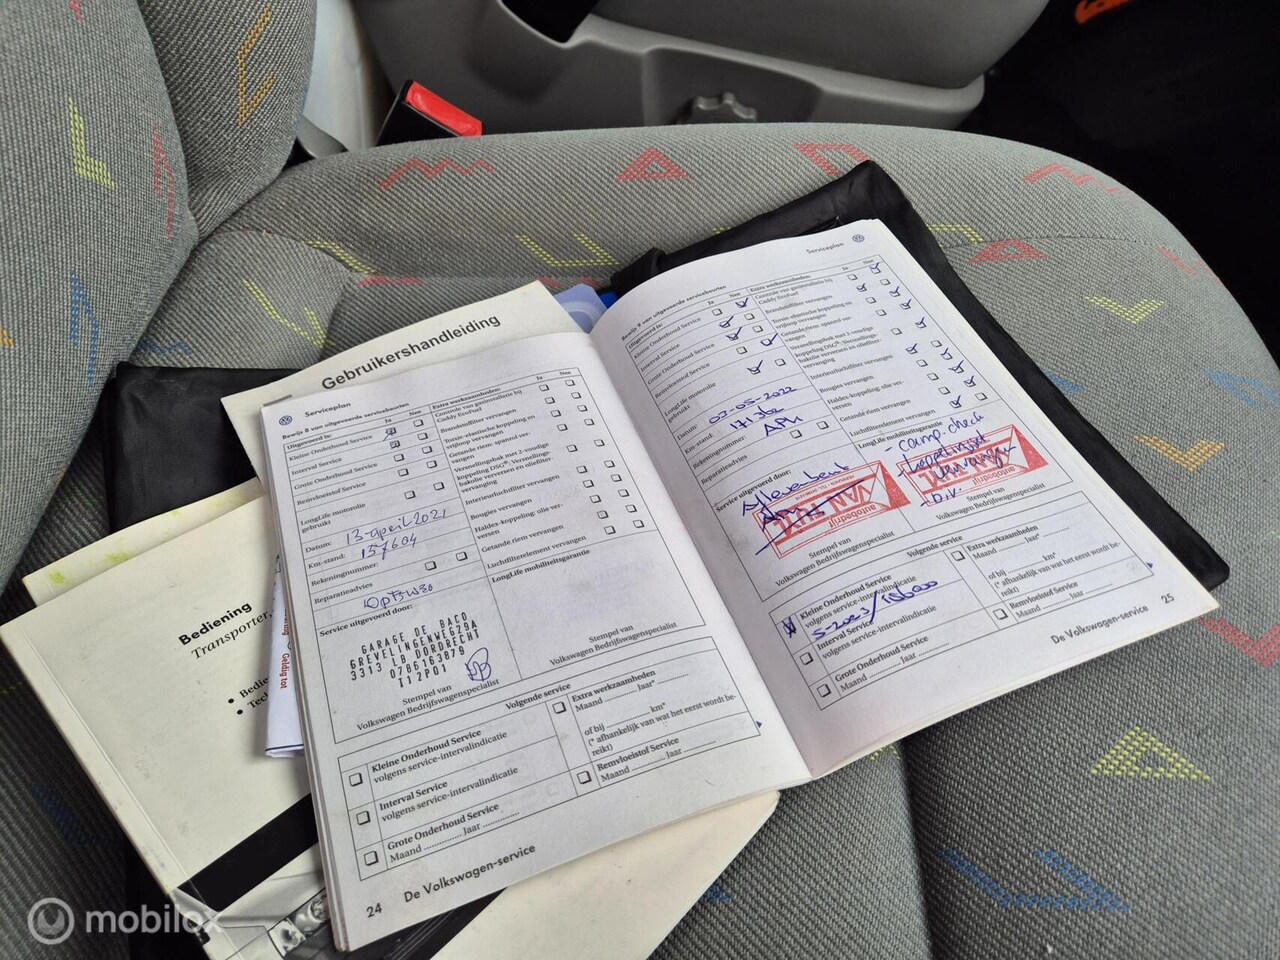 Gebruikershandleiding
Bediening
Transporter,
• Bedie
• Tec
Geldig tot
Serviceplan
Bewijs 8 van uitgevoerde servicebeurten
Uitgevoerd is: Ja Nee
Kleine Onderhoud Service
Interval Service
Grote Onderhoud Service
Remvloeistof Service
LongLife motorolie
gebruikt
Datum: 13-april 2021
Km-stand: 157604
Rekeningnummer:
Reparatieadvies
Service uitgevoerd door:
GARAGE DE BACO
GREVELINGENWEG29A
3313 LB DORDRECHT
0786163879
I12P01
Stempel van
Volkswagen Bedrijfswagenspecialist
Extra werkzaamheden: Ja Nee
Controle van gasinstallatie bij
Caddy EcoFuel
Brandstoffilter vervangen
Torsie-elastische koppeling en
vrijloop vervangen
Getande riem: spanrol ver-
vangen
Versnellingsbak met 7-voudige
koppeling DSG®: Versnellings-
bakolie verversen en oliefilter-
vervanging
Interieurluchtfilter vervangen
Bougies vervangen
Haldex-koppeling: olie ver-
versen
Getande riem vervangen
Luchtfilterelement vervangen
LongLife mobiliteitsgarantie
Stempel van
Volkswagen Bedrijfswagenspecialist
Volgende service
Kleine Onderhoud Service
volgens service-intervalindicatie
Interval Service
volgens service-intervalindicatie
Grote Onderhoud Service
Maand ............ Jaar ............
Extra werkzaamheden
Maand ............ Jaar*
of bij ............ km*
(* afhankelijk van wat het eerst wordt be-
reikt)
Remvloeistof Service
Maand ............ Jaar ............
24 De Volkswagen-service
Serviceplan
Bewijs 9 van uitgevoerde servicebeurten
Uitgevoerd is: Ja Nee
Kleine Onderhoud Service
Interval Service
Grote Onderhoud Service
Remvloeistof Service
LongLife motorolie
gebruikt
Datum: 03-05-2022
Km-stand: 171302
Rekeningnummer: APK
Reparatieadvies
Service uitgevoerd door:
autobedrijf
Stempel van
Volkswagen Bedrijfswagenspecialist
Extra werkzaamheden: Ja Nee
Controle van gasinstallatie bij
Caddy EcoFuel
Brandstoffilter vervangen
Torsie-elastische koppeling en
vrijloop vervangen
Getande riem: spanrol ver-
vangen
Versnellingsbak met 7-voudige
koppeling DSG®: Versnellings-
bakolie verversen en oliefilter-
vervanging
Interieurluchtfilter vervangen
Bougies vervangen
Haldex-koppeling: olie ver-
versen
Getande riem vervangen
Luchtfilterelement vervangen
LongLife mobiliteitsgarantie
- comp. check
autobedrijf
Stempel van
Volkswagen Bedrijfswagenspecialist
Volgende service
Kleine Onderhoud Service
volgens service-intervalindicatie
5-2023/
Interval Service
volgens service-intervalindicatie
Grote Onderhoud Service
Maand ............ Jaar ............
Extra werkzaamheden
Maand ............ Jaar*
of bij ............ km*
(* afhankelijk van wat het eerst wordt be-
reikt)
Remvloeistof Service
Maand ............ Jaar ............
De Volkswagen-service 25
mobilox